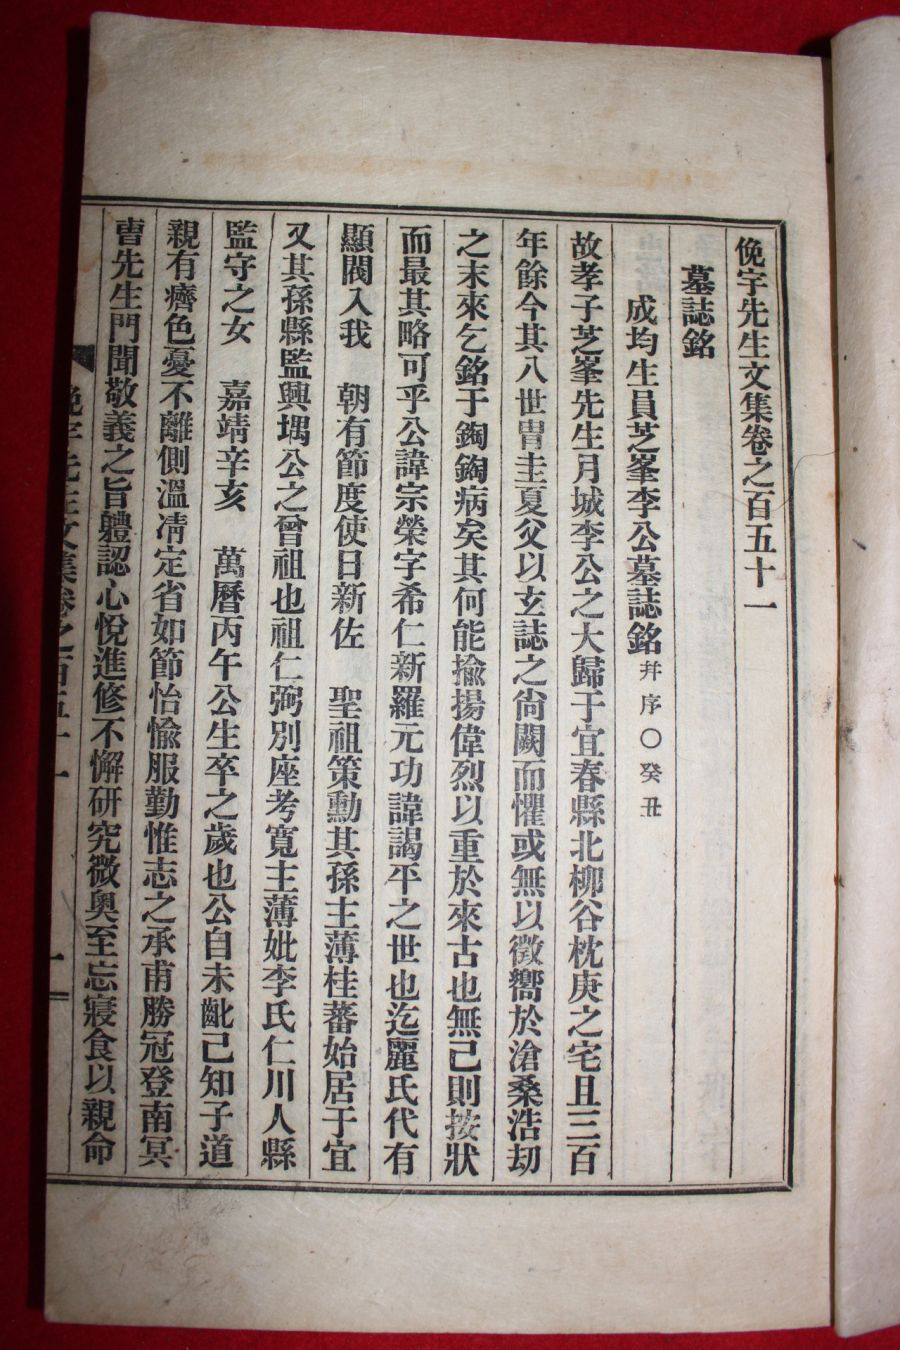 俛宇先生文集卷之百五十一
墓誌銘
成均生員芝峯李公墓誌銘 幷序○癸丑
故孝子芝峯先生月城李公之大歸于宜春縣北柳谷枕庚之宅且三百
年餘今其八世胄圭夏父以玄誌之尙闕而懼或無以徵嚮於滄桑浩劫
之末來乞銘于鋾鋾病矣其何能揄揚偉烈以重於來古也無已則按狀
而最其略可乎公諱宗榮字希仁新羅元功諱謁平之世也迄麗氏代有
顯閥入我　朝有節度使日新佐　聖祖策勳其孫主薄桂蕃始居于宜
又其孫縣監興堣公之曾祖也祖仁弼別座考寬主薄妣李氏仁川人縣
監守之女　嘉靖辛亥　萬曆丙午公生卒之歲也公自未齔已知子道
親有癠色憂不離側溫凊定省如節怡愉服勤惟志之承甫勝冠登南冥
曺先生門聞敬義之旨體認心悅進修不懈硏究微奧至忘寢食以親命
俛宇先生文集卷之百五十一
一